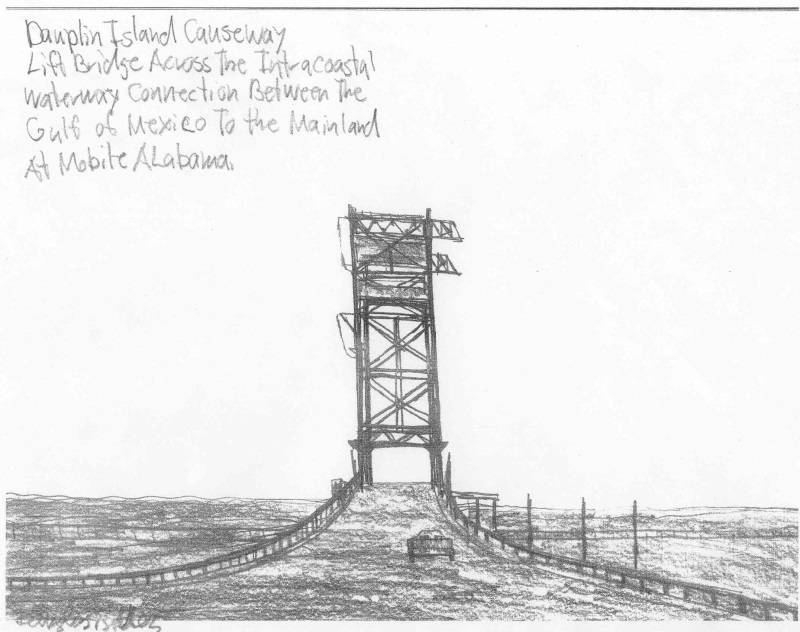 Dauplin Island Causeway
Lift Bridge Across The Intracoastal
Waterway Connection Between The
Gulf of Mexico To the Mainland
At Mobile ALabama.